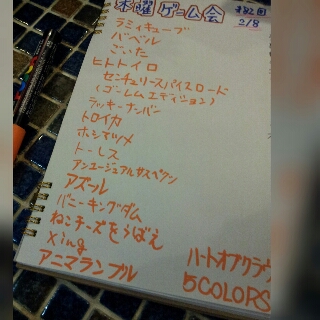 木曜ゲーム会
2/8
ラミィキューブ
バベル
ごいた
ヒトトイロ
センチュリースパイスロード
(ゴーレムエディション)
ラッキーナンバー
トロイカ
ホシヅメ
トーレス
アンユージュアルサスペクツ
アズール
バニーキングダム
ねこチーズをうばえ
Xing
アニマランブル
ハートオブクラウン
5COLORS